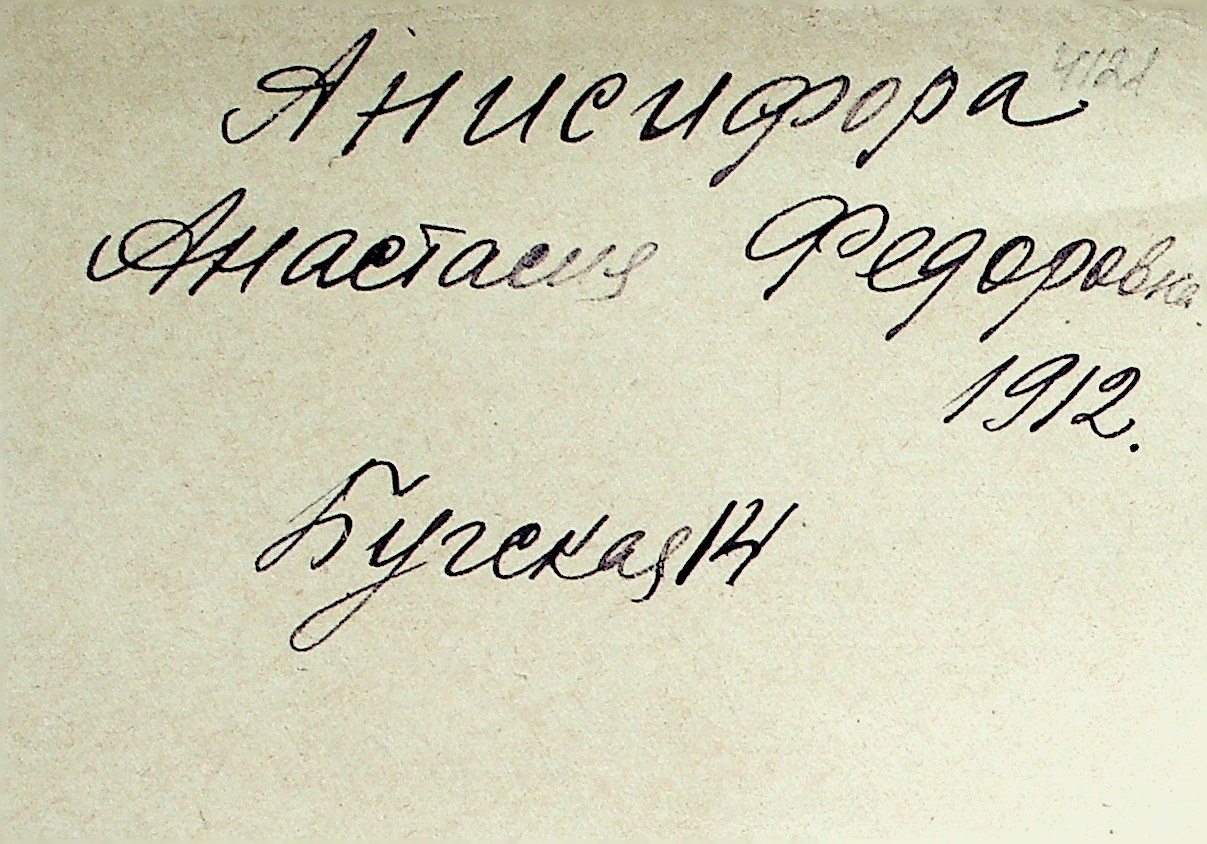 Анисифора
Анастасия Федоровна
1912.
Бугская 14